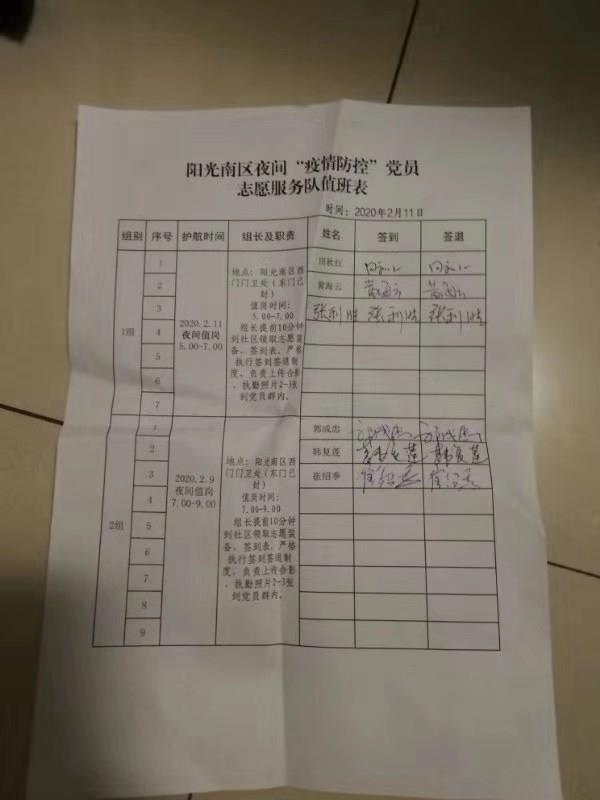 阳光南区夜间“疫情防控”党员
志愿服务队值班表
时间：2020年2月11日
组别 序号 护航时间 组长及职责 姓名 签到 签退
1组
1
2
3
4
5
6
7
2020.2.11
夜间值岗
5.00-7.00
地点：阳光南区西
门门卫处（东门已
封）
值岗时间：
5.00-7.00
组长提前10分钟
到社区领取志愿装
备、签到表。严格
执行签到签退制
度。负责上传合影
、执勤照片2-3张
到党员群内。
田秋红
黄海云 黄海云 黄海云
张利胜 张利胜 张利胜
2组
1
2
3
4
5
6
7
8
9
2020.2.9
夜间值岗
7.00-9.00
地点：阳光南区西
门门卫处（东门已
封）
值岗时间：
7.00-9.00
组长提前10分钟
到社区领取志愿装
备、签到表。严格
执行签到签退制
度。负责上传合影
、执勤照片2-3张
到党员群内。
郭成忠
韩复莲 韩复莲 韩复莲
张绍季